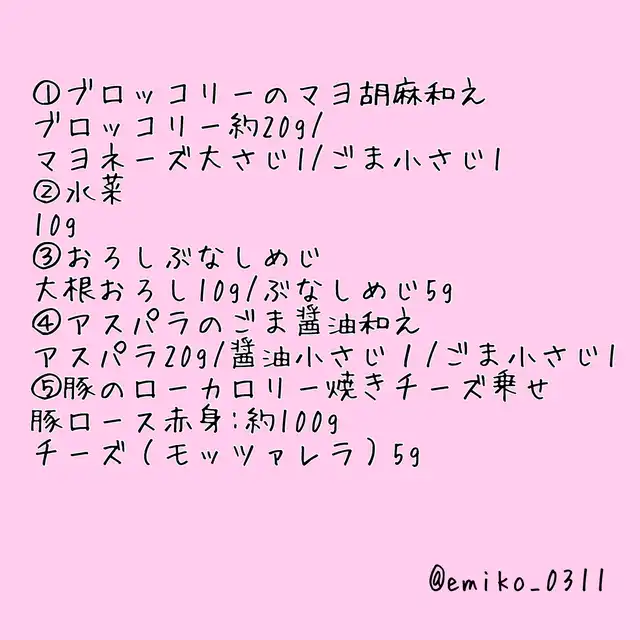 ①ブロッコリーのマヨ胡麻和え
ブロッコリー約20g/
マヨネーズ大さじ1/ごま小さじ1
②水菜
10g
③おろしぶなしめじ
大根おろし10g/ぶなしめじ5g
④アスパラのごま醤油和え
アスパラ20g/醤油小さじ1/ごま小さじ1
⑤豚のローカロリー焼きチーズ乗せ
豚ロース赤身:約100g
チーズ(モッツァレラ)5g
@emiko_0311